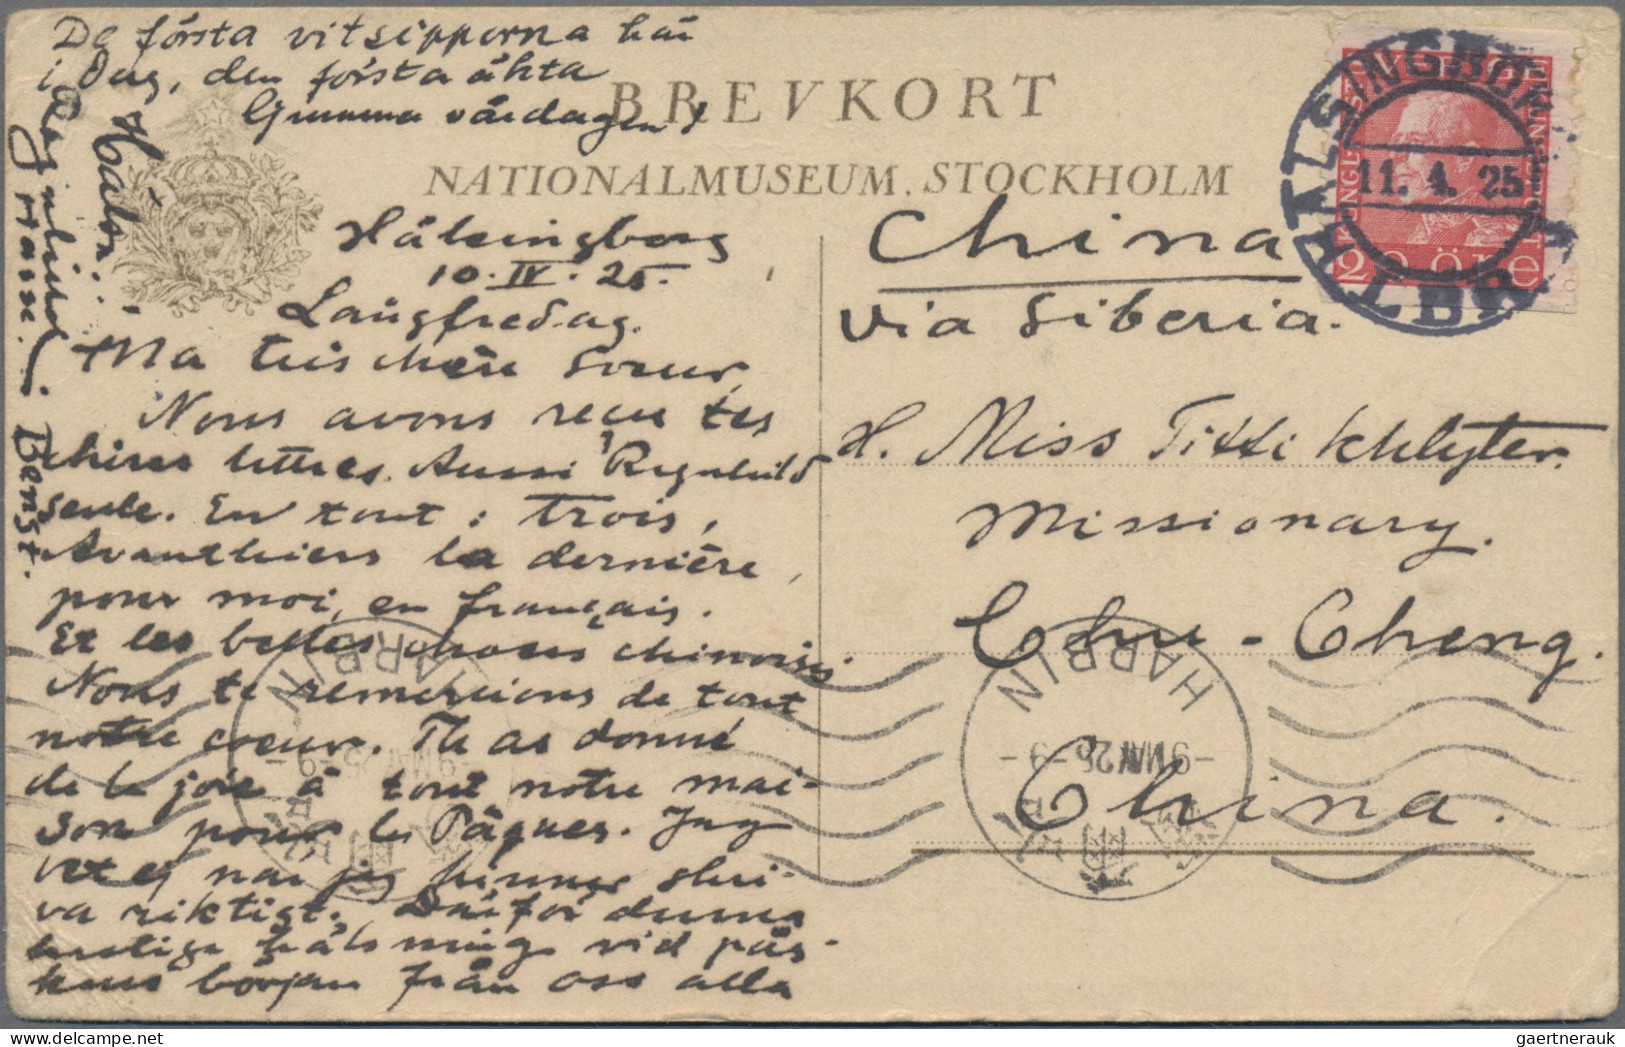 De första vitsipporna här
i dag, den första äkta
Gumma vårdagen!
BREVKORT
NATIONALMUSEUM, STOCKHOLM
Hälsingborg
10. IV. 25.
Långfredag.
Ma très chère Soeur,
Nous avons reçu tes
chères lettres. Aussi Ragnhild
seule. En tout: trois,
Avanthiers la dernière,
pour moi, en français.
Et les belles choses chinoises
Nous te remercions de tout
notre coeur. Tu as donné
de la joie à tout notre mai-
son pour les Pâques. Jag
vet ej när jag hinner skri-
va riktigt. Därför denna
hastiga hälsning vid pås-
kens början från oss alla
Hälsn.
Ragnhild
Hasse.
Bengt.
HÄLSINGBORG
11. 4. 25
LBR
SVERIGE
20 öre
China
via Siberia.
H. Miss Titti Khlyter.
Missionary.
Chu-Cheng.
China.
HARBIN
-9 MAY 25-9-
HARBIN
-9 MAY 25-9-
gaertnerauk